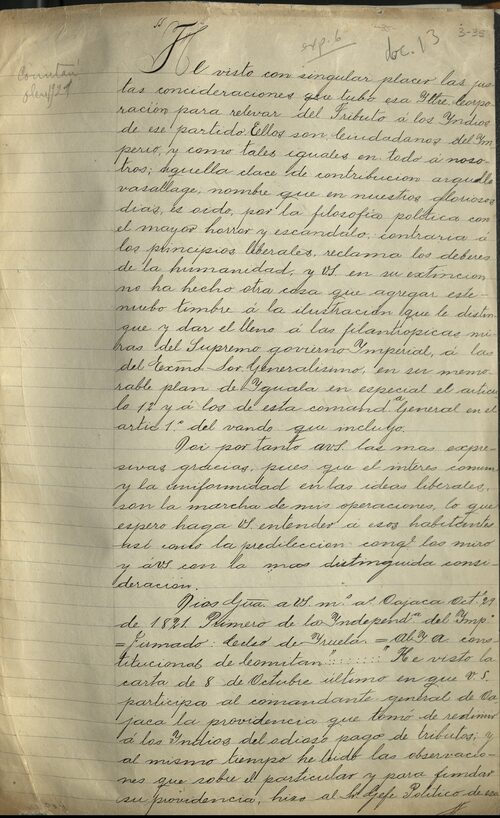 exp. 6
doc. 13
3-35
Comitán
"He visto con singular placer las jus-
tas concideraciones que tubo esa Yltre. Corpo-
racion para relevar del Tributo á los Yndios
de ese partido. Ellos son Ciudadanos del Ym-
perio, y como tales iguales en todo á noso-
tros; aquella clace de contribucion arguelle
vasallage, nombre que en nuestros gloriosos
dias, es oido, por la filosofia politica con
el mayor horror y escandalo, contraria á
los principios liberales, reclama los deberes
de la humanidad, y VS. en su extincion
no ha hecho otra cosa que agregar este
nuebo timbre á la ilustracion que le distin-
gue y dar el lleno á las filantropicas mi-
ras del Supremo govierno Ymperial, á las
del Exmô Sor. Generalisimo, en su memo-
rable plan de Yguala en especial el articu-
lo 12 y á los de esta comandª General en el
artiº 1.º del vando que incluyo.
Doi por tanto a VS. las mas expre-
sivas gracias, pues que el interes comun
y la uniformidad en las ideas liberales,
son la marcha de mis operaciones, lo que
espero haga VS. entender á esos habitantes
asi como la predileccion conqe. los miro
y á VS. con la mas distinguida consi-
deracion.
Dios Gue. a VS. mº aº Oajaca Octe. 29
de 1821. Primero de la Independª del Ympº
=Firmado: Celso de Yruela = Al Y. A. cons-
titucional de Comitan" "He visto la
carta de 8 de Octubre último en que V. S.
participa al comandante general de Oa-
jaca la providencia que tomó de redimir
á los Yndios del odioso pago de tributos; y
al mismo tiempo he leido las observacio-
nes que sobre el particular y para fundar
su providencia, hizo al Sr. Gefe Politico de esa